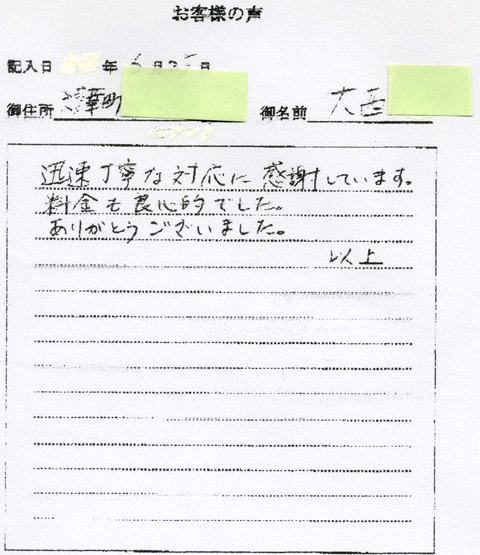 お客様の声
記入日 年 6月25日
御住所 精華町 御名前 大西
迅速丁寧な対応に感謝しています。
料金も良心的でした。
ありがとうございました。
以上